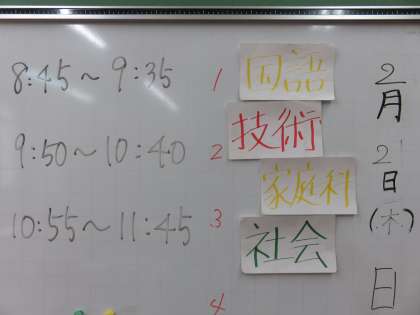 8:45～9:35
9:50～10:40
10:55～11:45
1 国語
2 技術
家庭科
3 社会
4
2月2日(木)
日